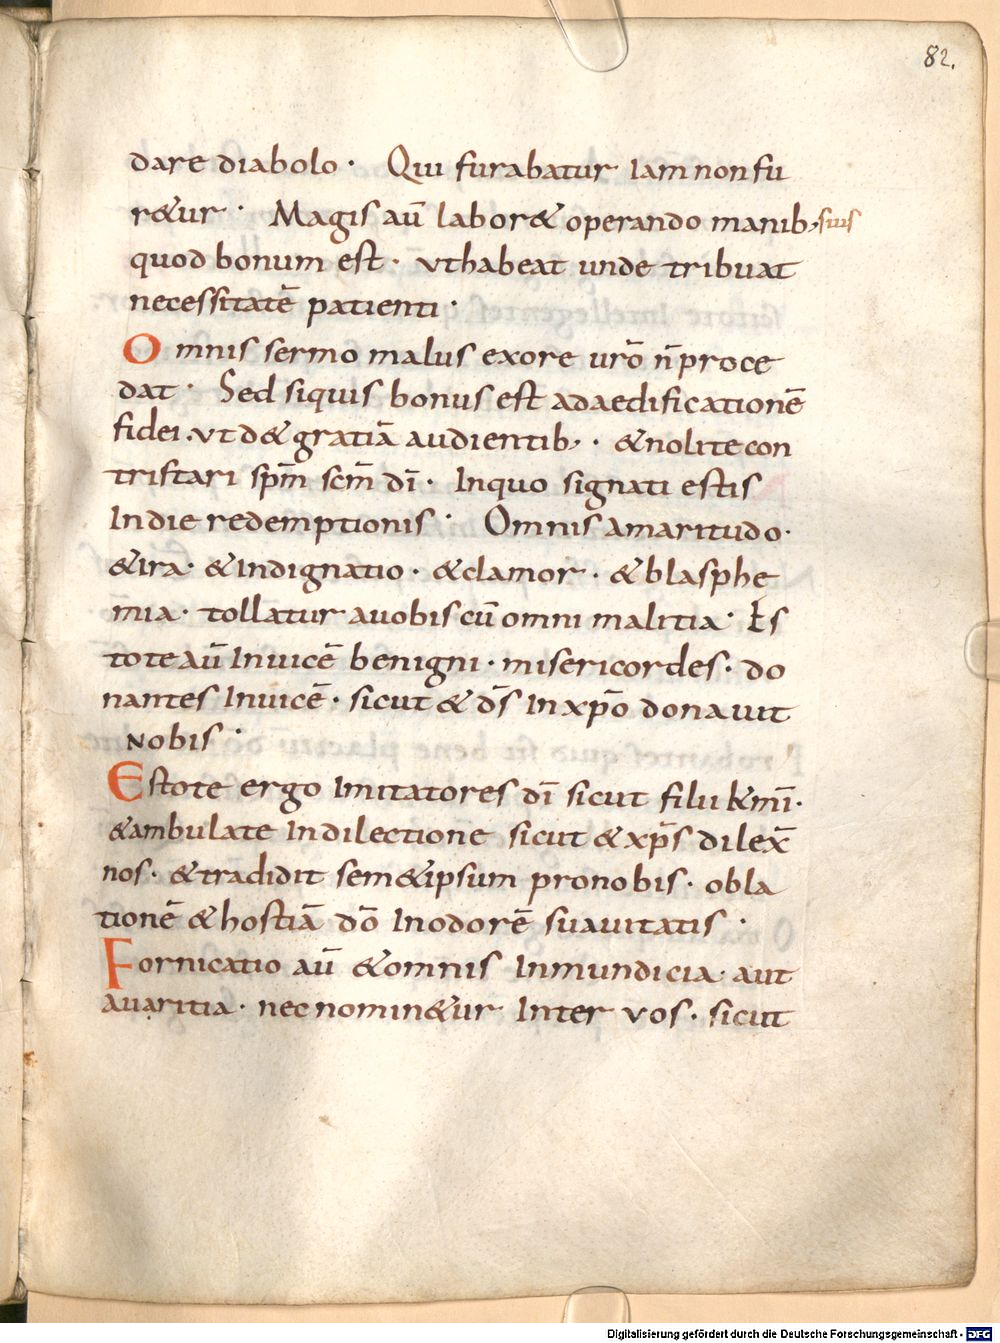 82.
dare diabolo · Qui furabatur iam non fu
r&ur · Magis aū labor& operando manib; suis
quod bonum est · vt habeat unde tribuat
necessitatē patienti ·
Omnis sermo malus ex ore urō n̄ proce
dat · Sed siquis bonus est ad aedificationē
fidei · vt d& gratiā audientib; · & nolite con
tristari sp̄m sc̄m dī · In quo signati estis
In die redemptionis · Omnis amaritudo ·
& ira · & Indignatio · & clamor · & blasphe
mia · tollatur a uobis cū omni malitia · Es
tote aū Inuicē benigni · misericordes · do
nantes Inuicē · sicut & d̄s In xp̄o donauit
nobis ·
Estote ergo Imitatores dī sicut filii k̄mī ·
& ambulate In dilectione sicut & xp̄s dilex̄
nos · & tradidit sem&ipsum pro nobis · obla
tionē & hostiā dō In odorē suauitatis ·
Fornicatio aū & omnis Inmundicia · aut
auaritia · nec nomin&ur Inter vos · sicut
Digitalisierung gefördert durch die Deutsche Forschungsgemeinschaft - DFG